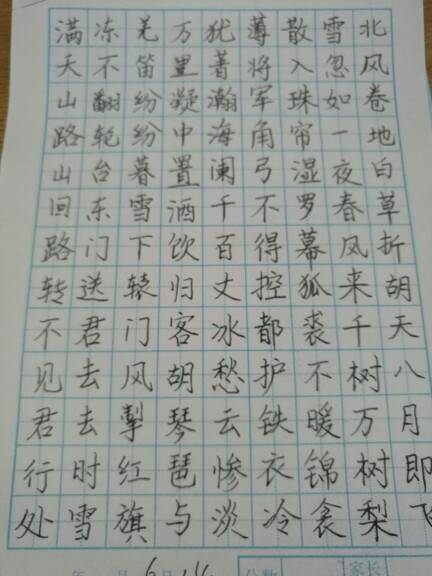 北风卷地白草折胡天八月即飞
雪忽如一夜春风来千树万树梨
散入珠帘湿罗幕狐裘不暖锦衾
薄将军角弓不得控都护铁衣冷
犹著瀚海阑干百丈冰愁云惨淡
万里凝中置酒饮归客胡琴琵与
羌笛纷纷暮雪下辕门风掣红旗
冻不翻轮台东门送君去去时雪
满天山路山回路转不见君行处
分数 家长